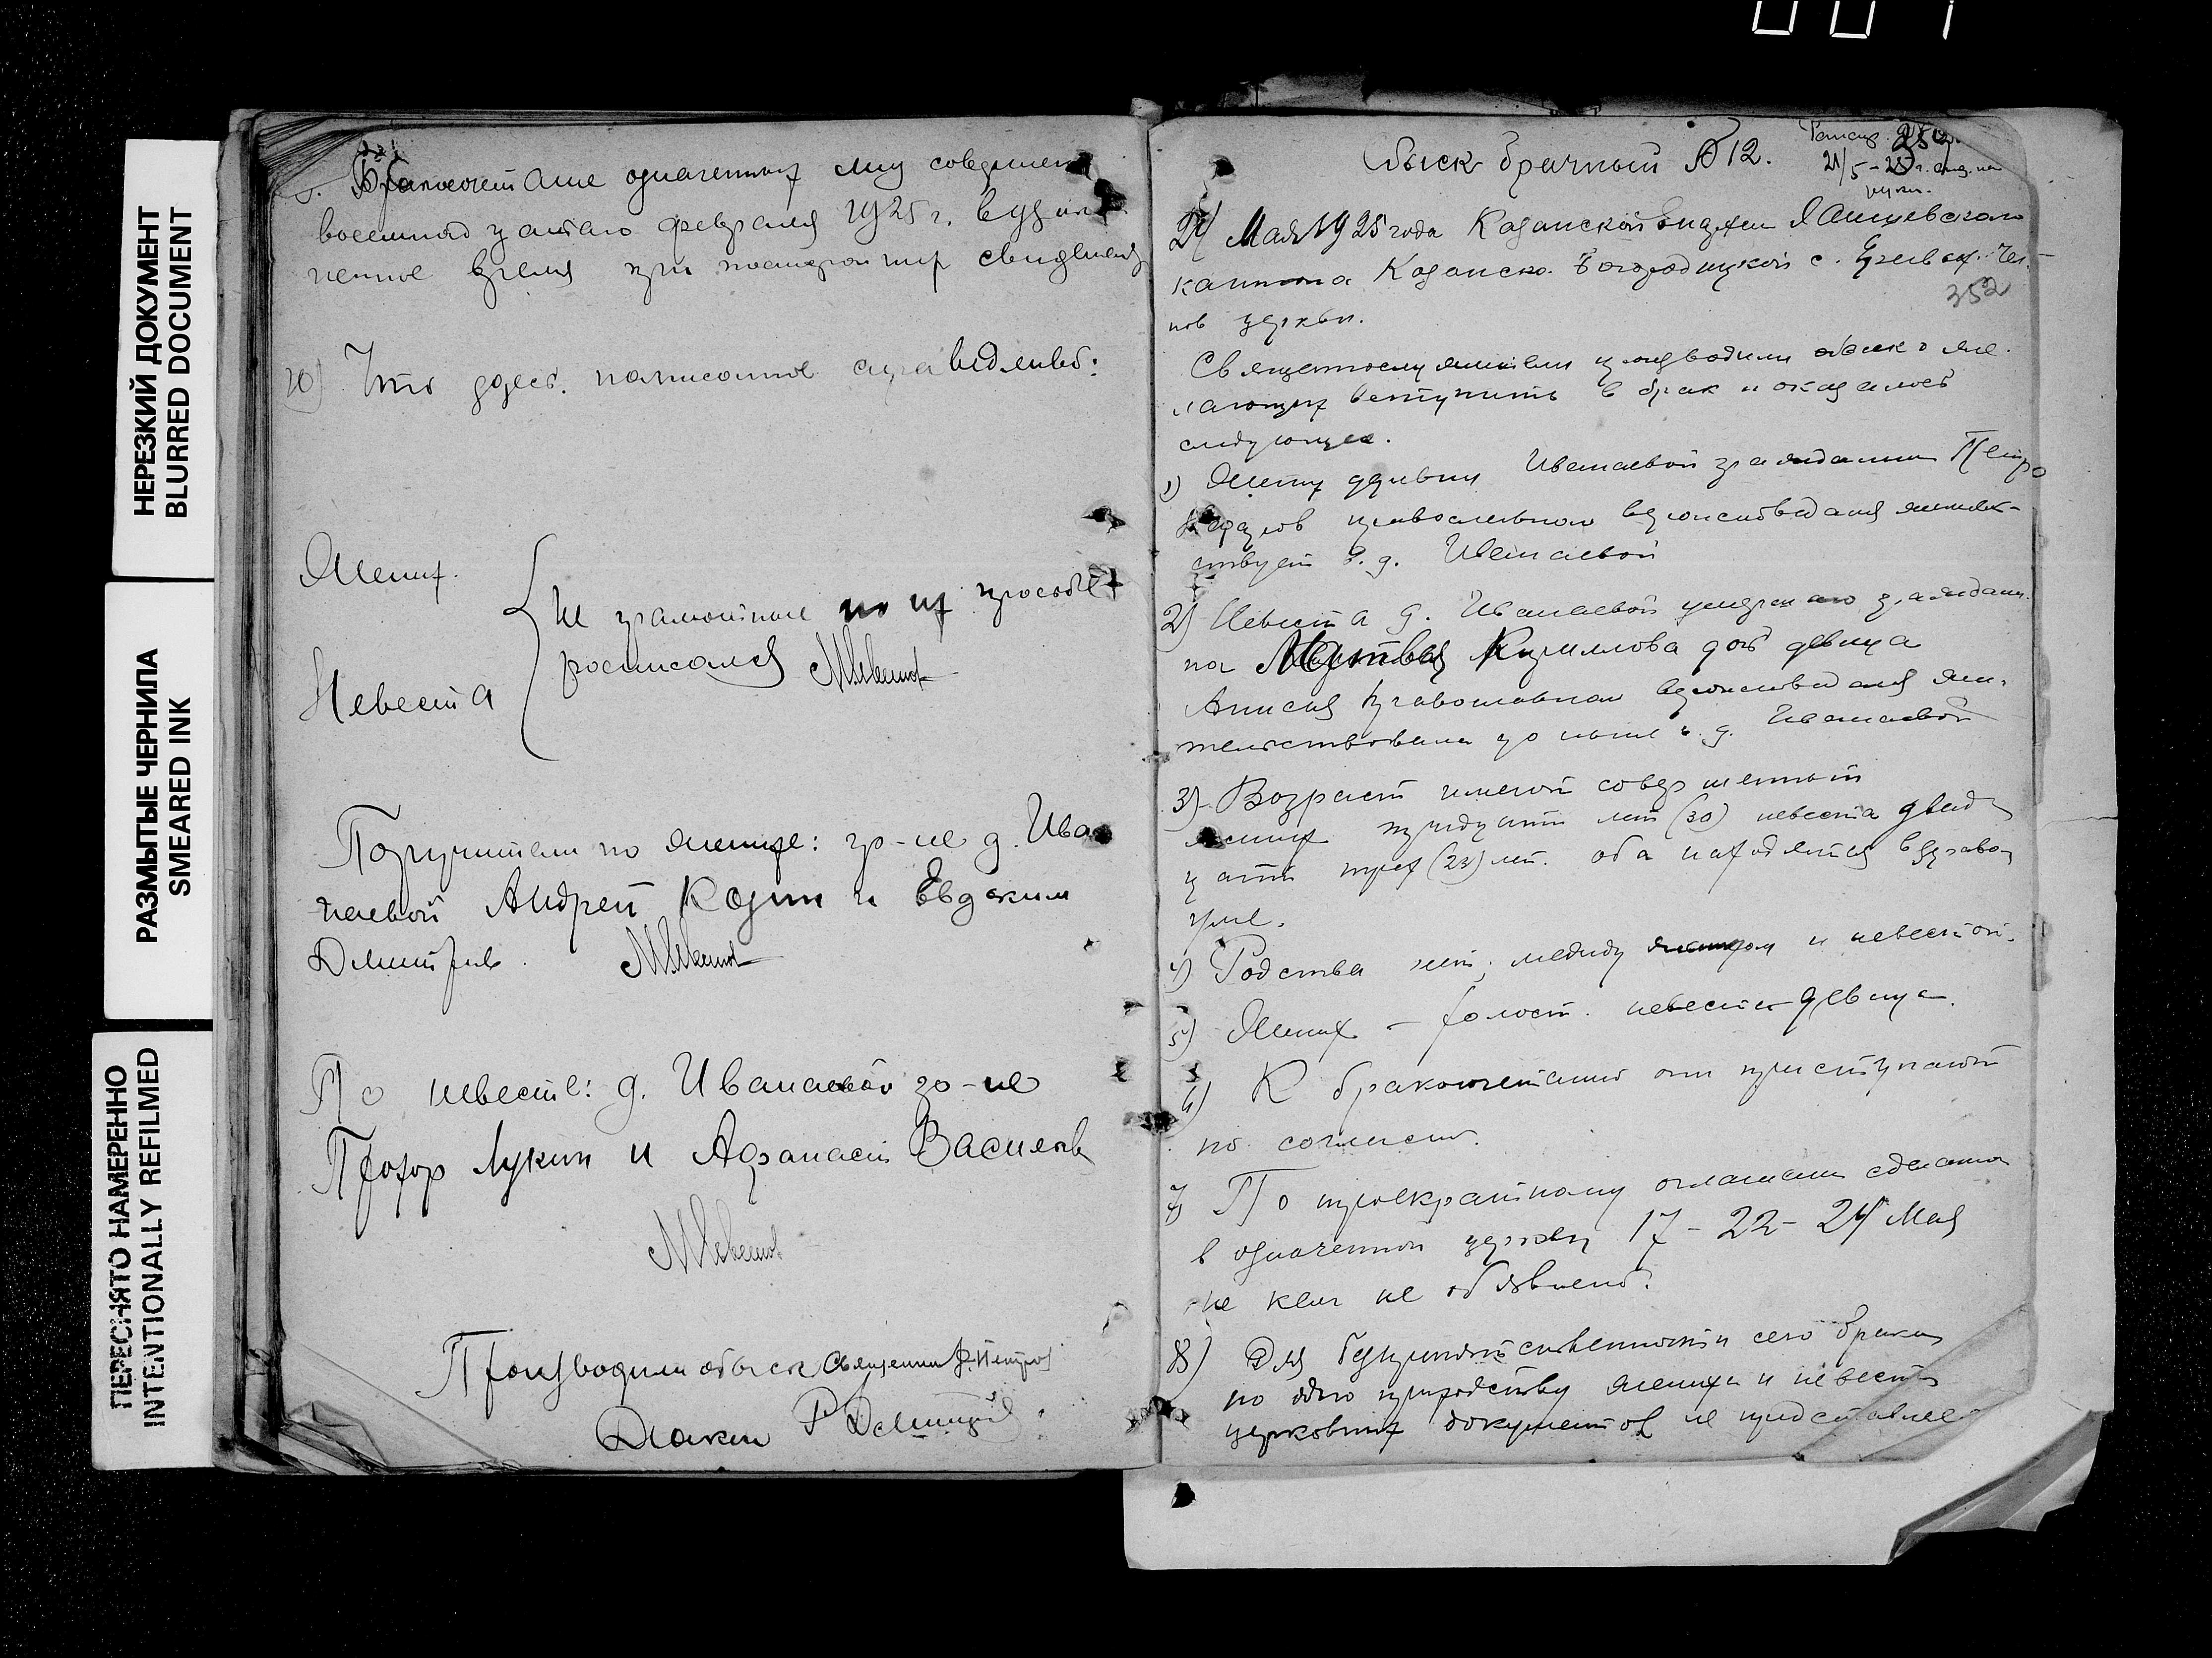 НЕРЕЗКИЙ ДОКУМЕНТ
BLURRED DOCUMENT
РАЗМЫТЫЕ ЧЕРНИЛА
SMEARED INK
ПЕРЕСНЯТО НАМЕРЕННО
INTENTIONALLY REFILMED
Бракосочетание означенных лиц совершено
февраля 1925 г. в узако-
ненное время при посторонних свидетелях
10) Что здесь написанное справедливо:
Жених
Не грамотные по их просьбе
росписался
Невеста
Поручители по женихе: гр-не д. Ива
наевой Андрей Козин и Евдоким
Дмитриев
По невесте: д. Иванаевой гр-не
Прохор Лукин и Афанасий Васильев
Производили обыск Священник Петров
Диакон
Обыск брачный № 12.
24 Мая 1925 года Казанской Епархии Лаишевского
кантона Казанско-Богородицкой с.
нов церкви.
Священнослужители производили обыск о же-
лающих вступить в брак и оказалось
следующее.
1) Жених деревни Иванаевой гражданин Петр
православного вероисповедания жительс-
твует в д. Иванаевой
2) Невеста д. Иванаевой умершаго граждани-
на Матвея Кириллова дочь девица
Анисия православного вероисповедания жи-
тельствовала до ныне в д. Иванаевой
3) Возраст имеют совершенный
жених тридцати лет (30) невеста двад
цати трех (23) лет. оба находятся в здравом
уме.
4) Родства нет между женихом и невестой.
5) Жених – холост. невеста девица.
6) К бракосочетанию они приступают
по согласию.
7) По троекратному оглашению сделанно
в означенной церкви 17 – 22 – 24 Мая
не кем не объявлено.
8) Для безпрепятственности сего брака
жениха и невесты
церковных документов не представлено
352